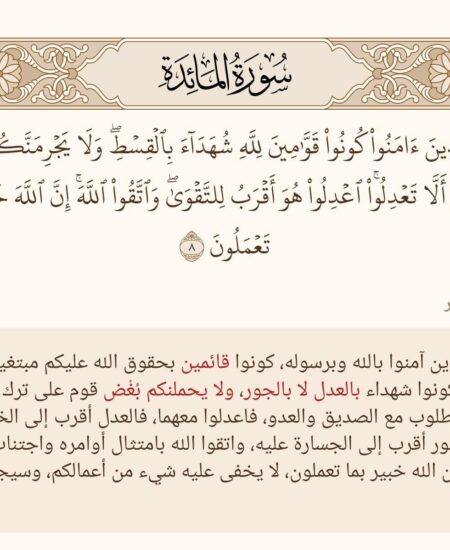 سُورَةُ المَائِدَةِ
ءَامَنُوا۟ كُونُوا۟ قَوَّٰمِينَ لِلَّهِ شُهَدَآءَ بِٱلْقِسْطِ ۖ وَلَا
أَلَّا تَعْدِلُوا۟ ۚ ٱعْدِلُوا۟ هُوَ أَقْرَبُ لِلتَّقْوَىٰ ۖ وَٱتَّقُوا۟ ٱللَّهَ ۚ إِنَّ ٱللَّهَ
تَعْمَلُونَ ٨
آمنوا بالله وبرسوله، كونوا قائمين بحقوق الله عليكم
شهداء بالعدل لا بالجور، ولا يحملنكم بُغْض قوم على ترك
مع الصديق والعدو، فاعدلوا معهما، فالعدل أقرب إلى
أقرب إلى الجسارة عليه، واتقوا الله بامتثال أوامره
الله خبير بما تعملون، لا يخفى عليه شيء من أعمالكم،